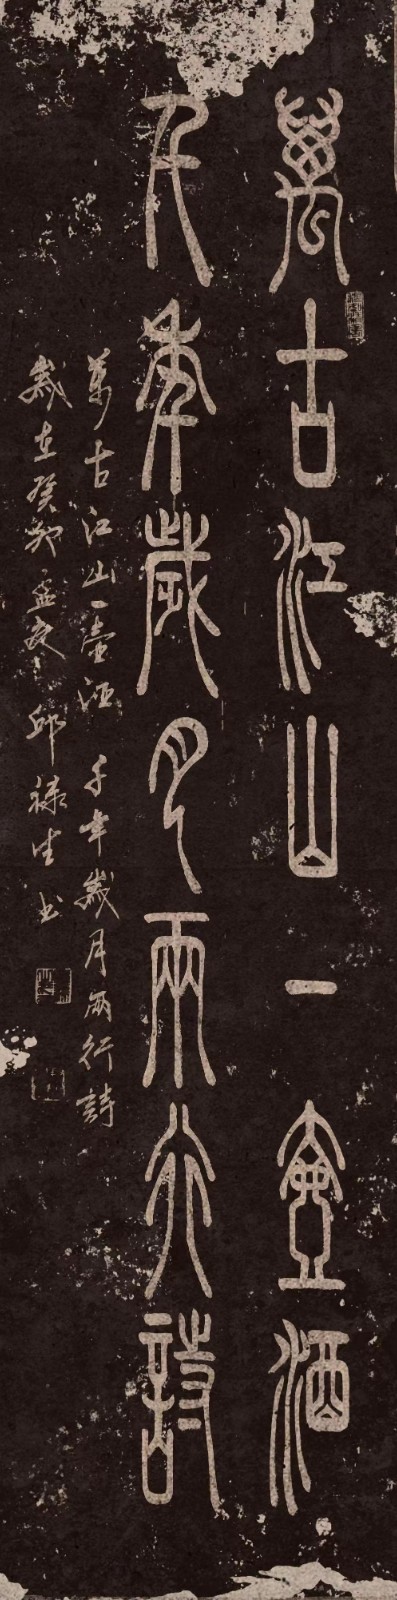 萬古江山一壺酒
千年歲月兩行詩
萬古江山一壺酒 千年歲月兩行詩
歲在癸卯孟夏 邱祿生書